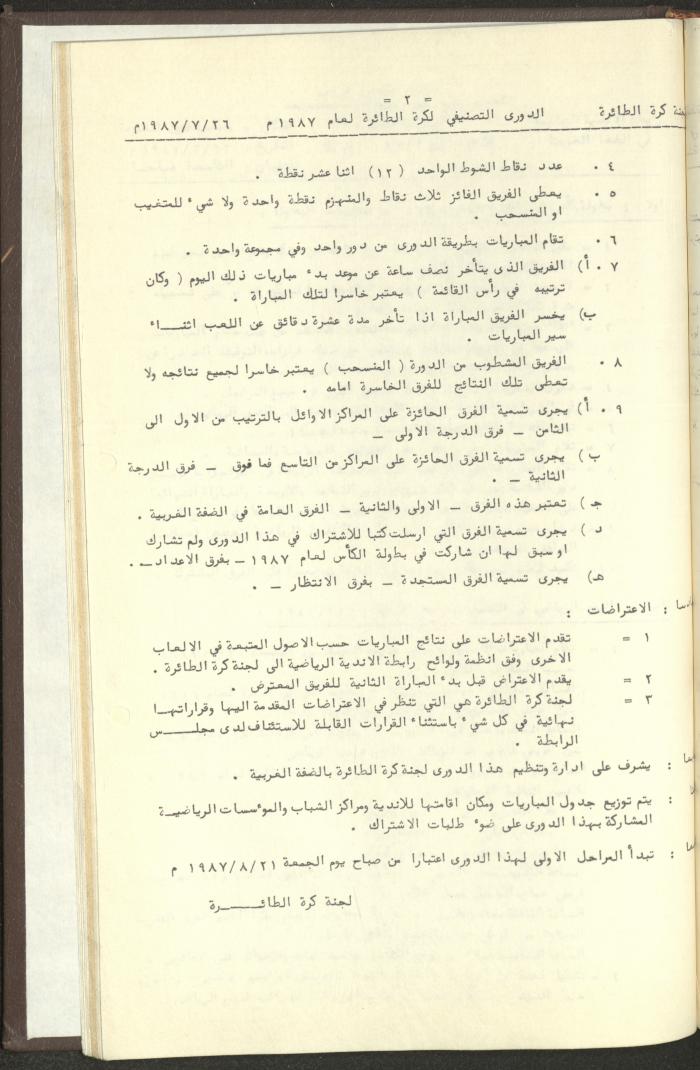 = ٢ =
لجنة كرة الطائرة الدورى التصنيفي لكرة الطائرة لعام ١٩٨٧ م ١٩٨٧/٧/٢٦م
٤ ٠ عدد نقاط الشوط الواحد (١٢) اثنا عشر نقطة .
٥ ٠ يعطى الفريق الفائز ثلاث نقاط والمنهزم نقطة واحدة ولا شيء للمتغيب
او المنسحب .
٦ ٠ تقام المباريات بطريقة الدورى من دور واحد وفي مجموعة واحدة .
٧ ٠ أ) الفريق الذى يتأخر نصف ساعة عن موعد بدء مباريات ذلك اليوم ( وكان
ترتيبه في رأس القائمة ) يعتبر خاسرا لتلك المباراة .
ب) يخسر الفريق المباراة اذا تأخر مدة عشرة دقائق عن اللعب اثنــاء
سير المباريات .
٨ ٠ الفريق المشطوب من الدورة ( المنسحب ) يعتبر خاسرا لجميع نتائجه ولا
تعطى تلك النتائج للفرق الخاسرة امامه .
٩ ٠ أ) يجرى تسمية الفرق الحائزة على المراكز الاوائل بالترتيب من الاول الى
الثامن ـ فرق الدرجة الاولى ـ
ب) يجرى تسمية الفرق الحائزة على المراكز من التاسع فما فوق ـ فرق الدرجة
الثانية ـ .
جـ) تعتبر هذه الفرق ـ الاولى والثانية ـ الفرق العامة في الضفة الغربية .
د ) يجرى تسمية الفرق التي ارسلت كتبا للاشتراك في هذا الدورى ولم تشارك
او سبق لها ان شاركت في بطولة الكأس لعام ١٩٨٧ ـ بفرق الاعداد ـ . .
هـ) يجرى تسمية الفرق المستجدة ـ بفرق الانتظار ـ .
دسا : الاعتراضات :
١ = تقدم الاعتراضات على نتائج المباريات حسب الاصول المتبعة في الالعاب
الاخرى وفق انظمة ولوائح رابطة الاندية الرياضية الى لجنة كرة الطائرة .
٢ = يقدم الاعتراض قبل بدء المباراة الثانية للفريق المعترض .
٣ = لجنة كرة الطائرة هي التي تنظر في الاعتراضات المقدمة اليها وقراراتهــا
نهائية في كل شيء باستثناء القرارات القابلة للاستئناف لدى مجلــــس
الرابطة .
: يشرف على ادارة وتنظيم هذا الدورى لجنة كرة الطائرة بالضفة الغربية .
: يتم توزيع جدول المباريات ومكان اقامتها للاندية ومراكز الشباب والمؤسسات الرياضيــة
المشاركة بهذا الدورى على ضوء طلبات الاشتراك .
: تبدأ المراحل الاولى لهذا الدورى اعتبارا من صباح يوم الجمعة ١٩٨٧/٨/٢١ م
لجنة كرة الطائــــــرة